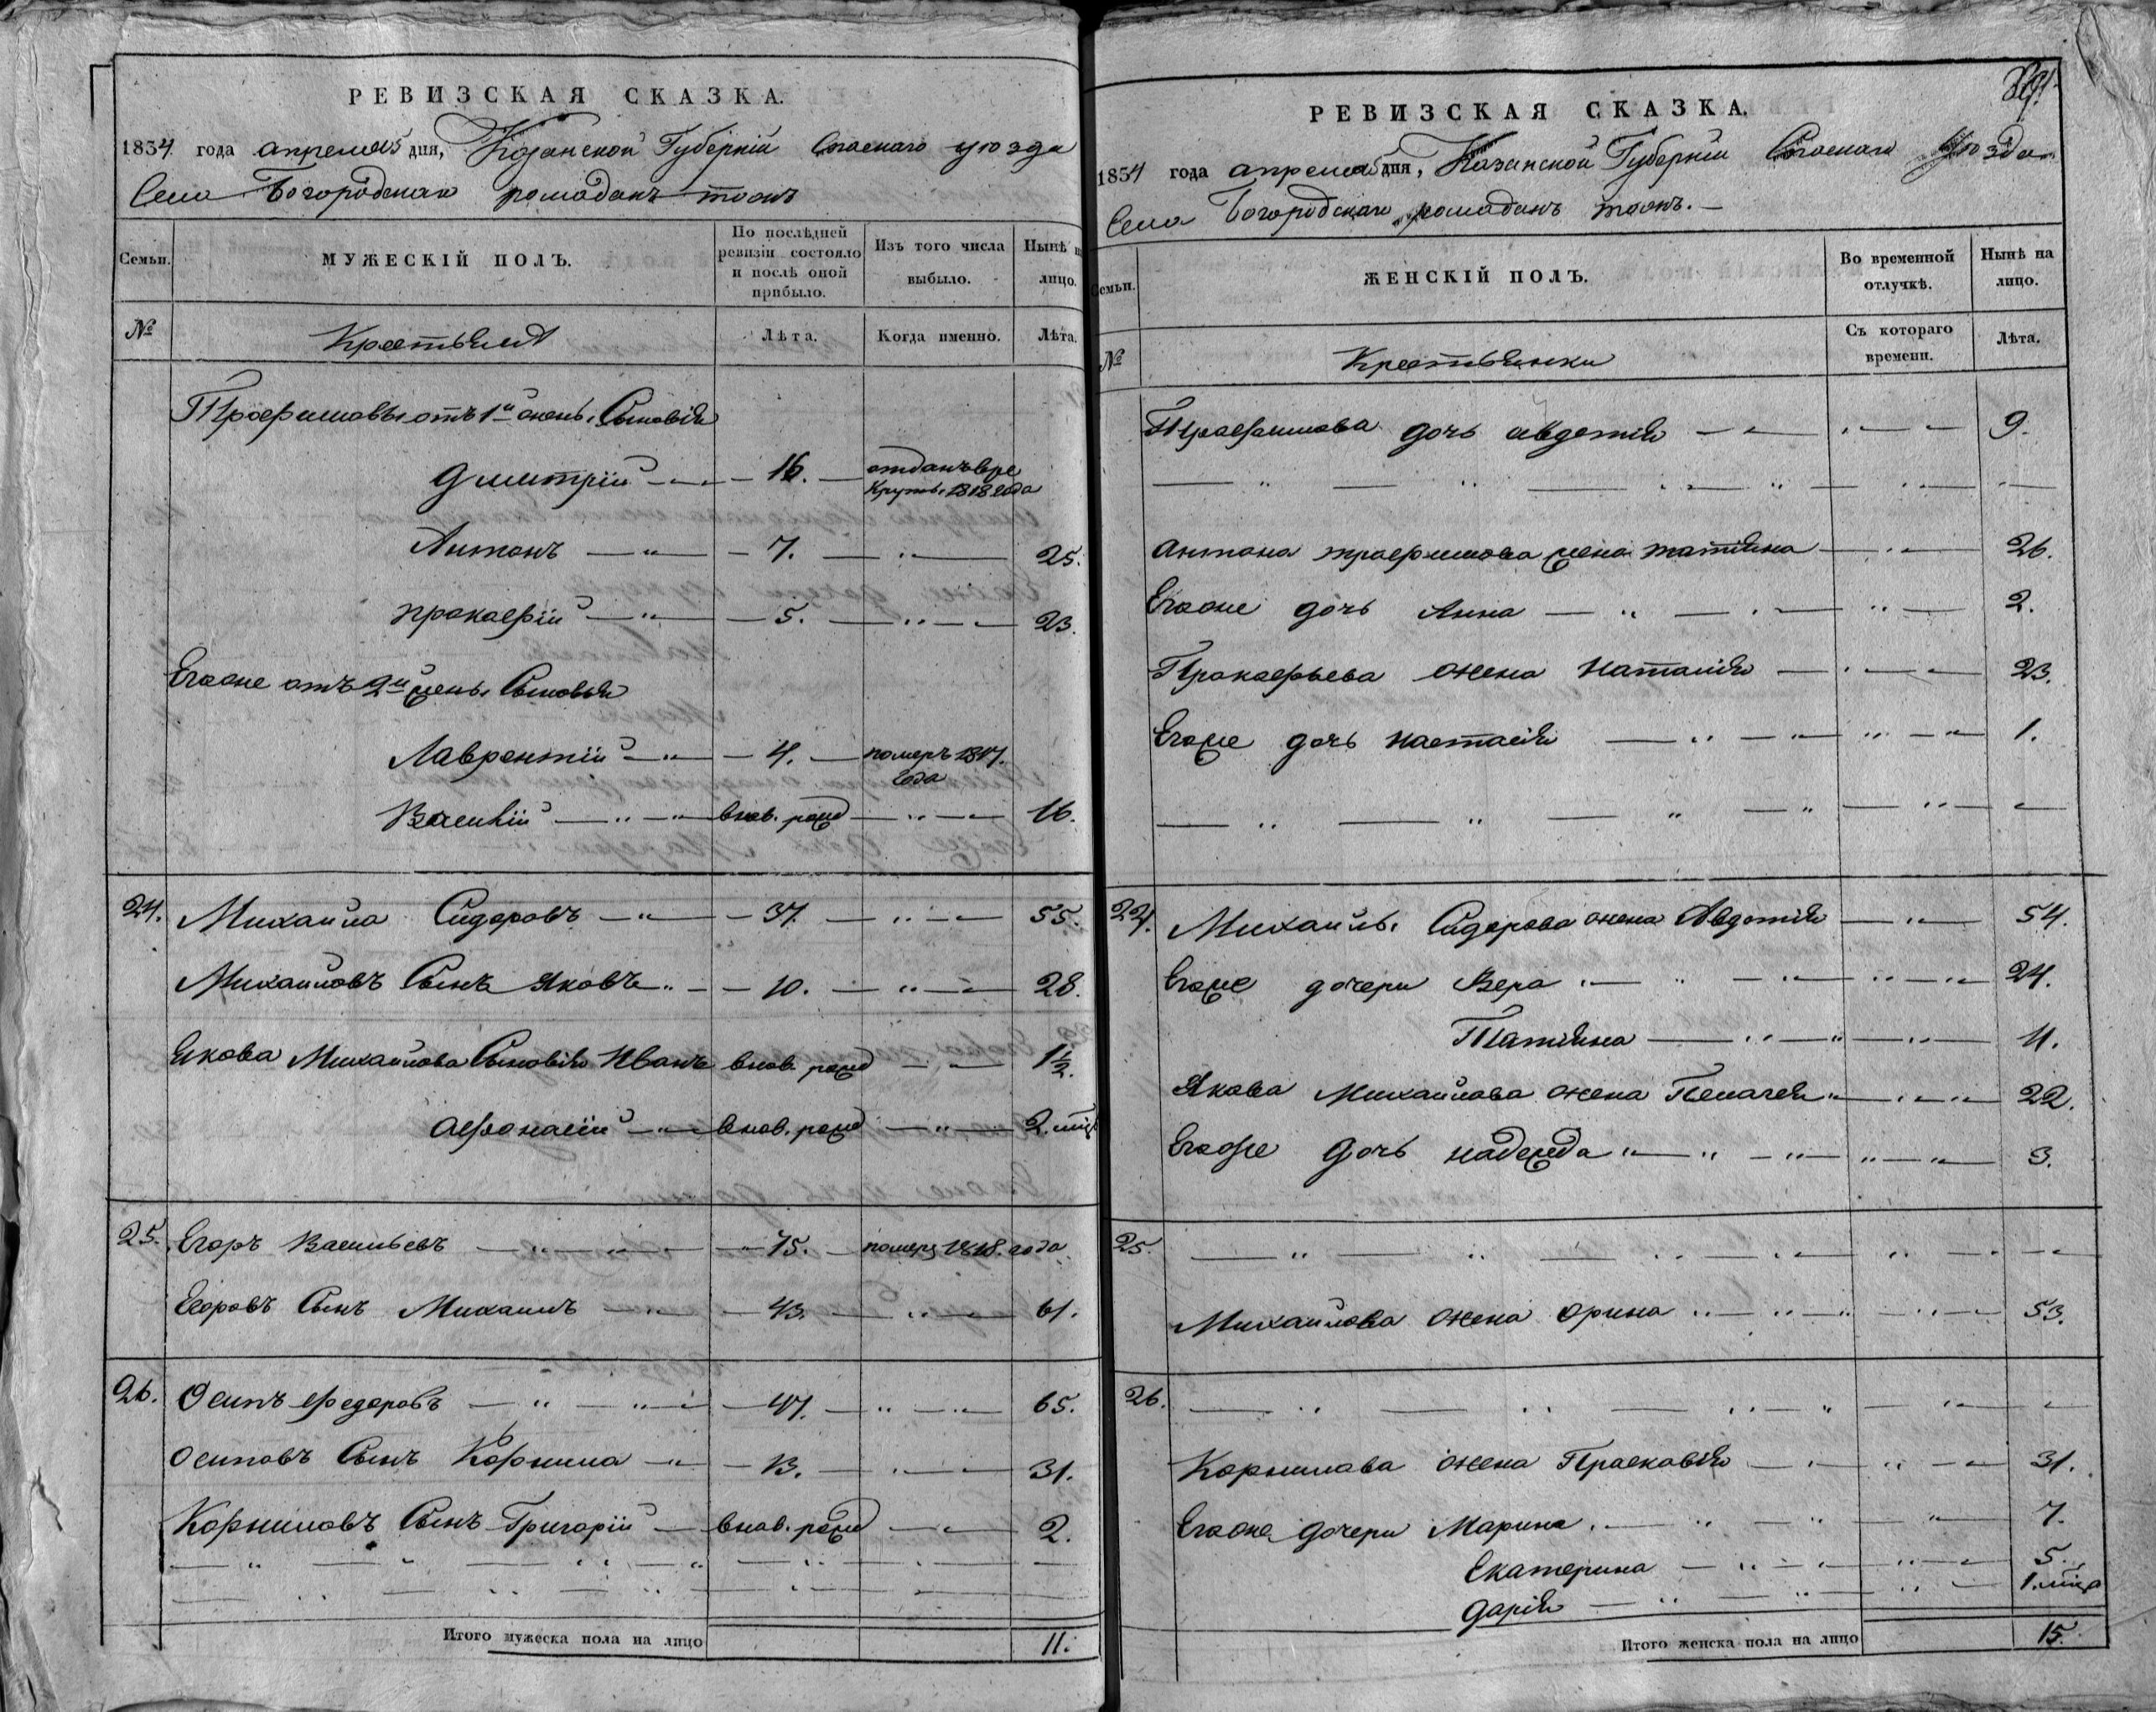 РЕВИЗСКАЯ СКАЗКА.
1834 года апреля 5 дня, Казанской Губерніи Спаскаго уюзда
Села Богородскаго ромаданъ тожъ
Семьи. МУЖЕСКІЙ ПОЛЪ. По послѣдней ревизіи состояло и послѣ оной прибыло. Изъ того числа выбыло. Нынѣ на лицо.
№ Крестьяня Лѣта. Когда именно. Лѣта.
Трофимовы отъ 1й жены Сыновія
Дмитрій 16. отданъ в ре
круты 1818 года
Антонъ 7. 25.
прокофій 5. 23.
Егоже отъ 2й жены Сыновья
Лаврентий 4. померъ 1817.
года
Василій внов. рожд 16.
24. Михайла Сидоровъ 37 55.
Михайловъ Сынъ Яковъ 10. 28.
Якова Михайлова Сыновія Иванъ внов. рожд 1½.
Афонасій внов. рожд 2. мца
25. Егоръ Васильевъ 75. померъ 1818. года
Егоровъ Сынъ Михаилъ 43. 61.
26. Осипъ Федоровъ 47. 65.
Осиповъ Сынъ Корнила 13. 31.
Корниловъ Сынъ Григорій внов. рожд 2.
Итого мужеска пола на лицо 11.
РЕВИЗСКАЯ СКАЗКА.
1834 года апреля 5 дня, Казанской Губерніи Спаскаго Уюзда
Села Богородскаго ромаданъ тожъ.
Семьи. ЖЕНСКІЙ ПОЛЪ. Во временной отлучкѣ. Нынѣ на лицо.
№ Крестьянки Съ котораго времени. Лѣта.
Трофимова дочь авдотія 9.
Антона трофимова жена татіяна 26.
Егоже дочь Анна 2.
Прокофьева жена Наталія 23.
Егоже дочь Настасія 1.
24. Михайлы Сидорова жена Авдотія 54.
Егоже дочери Вера 24.
Татіяна 11.
Якова Михайлова жена Пелагея 22.
Егоже дочь надежда 3.
25.
Михайлова жена орина 53.
26.
Корнилова жена Прасковія 31.
Егоже дочери Марина 7.
Екатерина 5.
Дарія 1. мца
Итого женска пола на лицо 15.